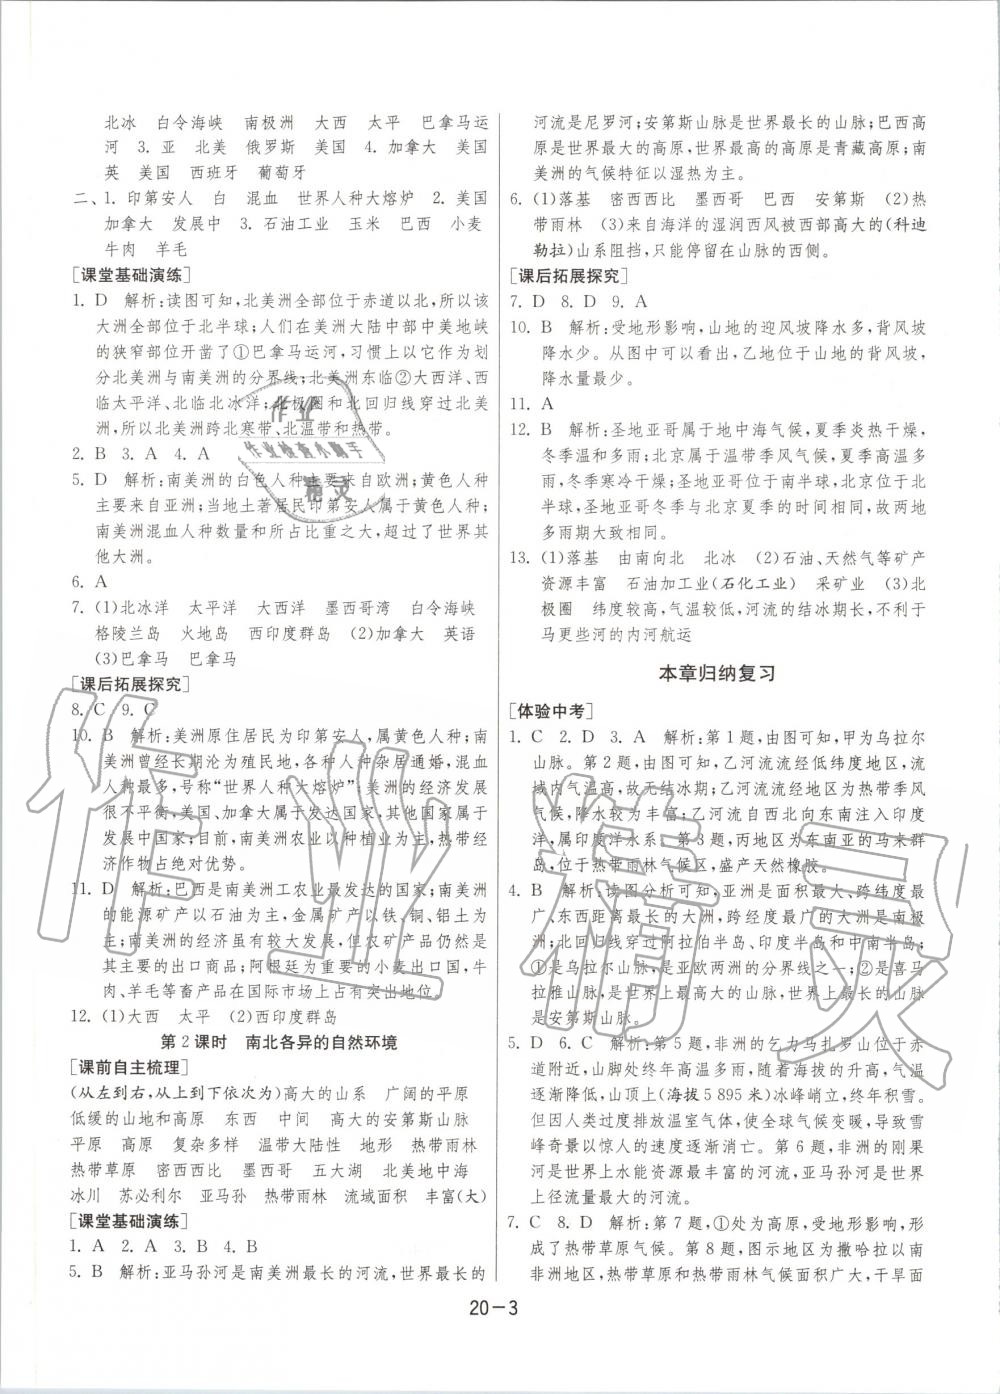 北冰　白令海峡　南极洲　大西　太平　巴拿马运
河　3. 亚　北美　俄罗斯　美国　4. 加拿大　美国
英　美国　西班牙　葡萄牙
二、1. 印第安人　白　混血　世界人种大熔炉　2. 美国
加拿大　发展中　3. 石油工业　玉米　巴西　小麦
牛肉　羊毛
[课堂基础演练]
1. D　解析:读图可知,北美洲全部位于赤道以北,所以该
大洲全部位于北半球;人们在美洲大陆中部中美地峡
的狭窄部位开凿了①巴拿马运河,习惯上以它作为划
分北美洲与南美洲的分界线;北美洲东临②大西洋、西
临太平洋、北临北冰洋;北极圈和北回归线穿过北美
洲,所以北美洲跨北寒带、北温带和热带。
2. B　3. A　4. A
5. D　解析:南美洲的白色人种主要来自欧洲;黄色人种
主要来自亚洲;当地土著居民印第安人属于黄色人种;
南美洲混血人种数量和所占比重之大,超过了世界其
他大洲。
6. A
7. (1)北冰洋　太平洋　大西洋　墨西哥湾　白令海峡
格陵兰岛　火地岛　西印度群岛　(2)加拿大　英语
(3)巴拿马　巴拿马
[课后拓展探究]
8. C　9. C
10. B　解析:美洲原住居民为印第安人,属黄色人种;南
美洲曾经长期沦为殖民地,各种人种杂居通婚,混血
人种最多,号称“世界人种大熔炉”;美洲的经济发展
很不平衡,美国、加拿大属于发达国家,其他国家属于
发展中国家;目前,南美洲农业以种植业为主,热带经
济作物占绝对优势。
11. D　解析:巴西是南美洲工农业最发达的国家;南美洲
的能源矿产以石油为主,金属矿产以铁、铜、铝土为
主;南美洲的经济虽有较大发展,但农矿产品仍然是
其主要的出口商品;阿根廷为重要的小麦出口国,牛
肉、羊毛等畜产品在国际市场上占有突出地位。
12. (1)大西　太平　(2)西印度群岛
第 2 课时　南北各异的自然环境
[课前自主梳理]
(从左到右,从上到下依次为)高大的山系　广阔的平原
低缓的山地和高原　东西　中间　高大的安第斯山脉
平原　高原　复杂多样　温带大陆性　地形　热带雨林
热带草原　密西西比　墨西哥　五大湖　北美地中海
冰川　苏必利尔　亚马孙　热带雨林　流域面积　丰富(大)
[课堂基础演练]
1. A　2. A　3. B　4. B
5. B　解析:亚马孙河是南美洲最长的河流,世界最长的
河流是尼罗河;安第斯山脉是世界最长的山脉;巴西高
原是世界最大的高原,世界最高的高原是青藏高原;南
美洲的气候特征以湿热为主。
6. (1)落基　密西西比　墨西哥　巴西　安第斯　(2)热
带雨林　(3)来自海洋的湿润西风被西部高大的(科迪
勒拉)山系阻挡,只能停留在山脉的西侧。
[课后拓展探究]
7. D　8. D　9. A
10. B　解析:受地形影响,山地的迎风坡降水多,背风坡
降水少。从图中可以看出,乙地位于山地的背风坡,
降水量最少。
11. A
12. B　解析:圣地亚哥属于地中海气候,夏季炎热干燥,
冬季温和多雨;北京属于温带季风气候,夏季高温多
雨,冬季寒冷干燥;圣地亚哥位于南半球,北京位于北
半球,圣地亚哥冬季与北京夏季的时间相同,故两地
多雨期大致相同。
13. (1)落基　由南向北　北冰　(2)石油、天然气等矿产
资源丰富　石油加工业(石化工业)　采矿业　(3)北
极圈　纬度较高,气温较低,河流的结冰期长,不利于
马更些河的内河航运
本章归纳复习
[体验中考]
1. C　2. D　3. A　解析:第 1 题,由图可知,甲为乌拉尔
山脉。第 2 题,由图可知,乙河流流经低纬度地区,气
温较高,故无结冰期;乙河流流经地区,为热带季风
气候,降水较为丰富;乙河流自西北向东南注入印度
洋,属印度洋水系。第 3 题,丙地区为东南亚的马来群
岛,位于热带雨林气候区,盛产天然橡胶。
4. B　解析:读图分析可知,亚洲是面积最大、跨纬度最
广、东西距离最长的大洲,跨经度最广的大洲是南极
洲;北回归线穿过阿拉伯半岛、印度半岛和中南半岛;
①是乌拉尔山脉,是亚欧两洲的分界线之一;②是喜马
拉雅山脉,是世界上最高大的山脉,世界上最长的山脉
是安第斯山脉。
5. D　6. C　解析:第 5 题,非洲的乞力马扎罗山位于赤
道附近,山脚处终年高温多雨,随着海拔的升高,气温
逐渐降低,山顶上(海拔 5 895 米)冰峰崎立,终年积雪。
但因人类过度排放温室气体,使全球气候变暖,导致雪
峰奇景以惊人的速度逐渐消亡。第 6 题,非洲的刚果
河是世界上水能资源最丰富的河流,亚马孙河是世界
上径流量最大的河流。
7. C　8. D　解析:第 7 题,①处为高原,受地形影响,形
成了热带草原气候。第 8 题,图示地区为撒哈拉以南
非洲地区,热带草原和热带雨林气候面积广大,干旱面
20－3
作业
作业检查小助手
精灵
作业精灵